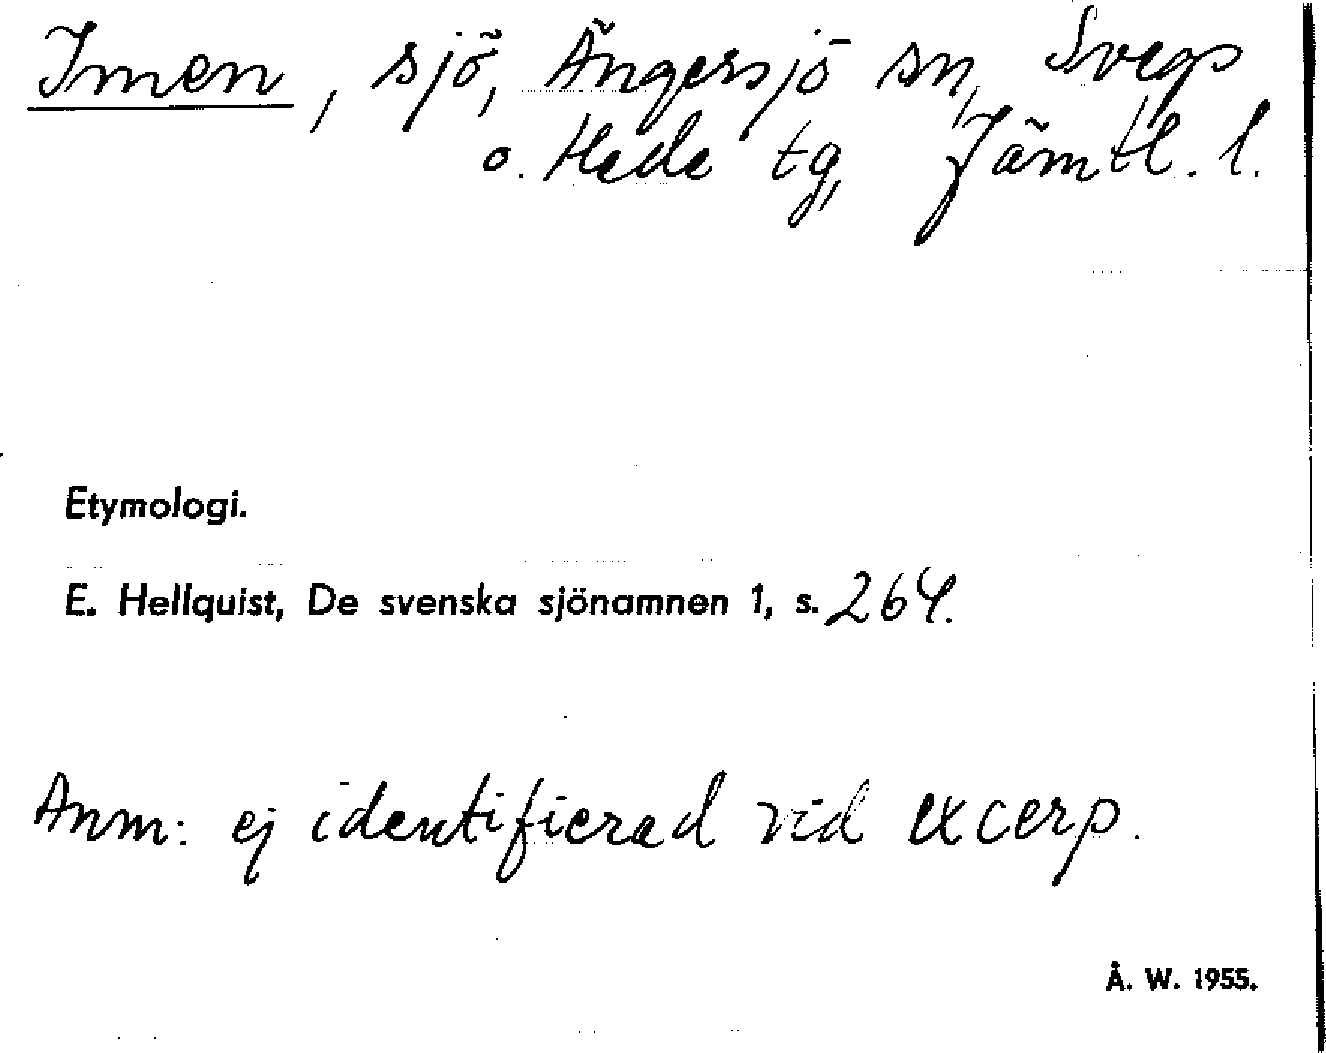 Imen, sjö, Ängersjö sn, Svegs
o. Hede tg, Jämtl. l.
Etymologi.
E. Hellquist, De svenska sjönamnen 1, s. 264.
Anm: ej identifierad vid excerp.
Å. W. 1955.